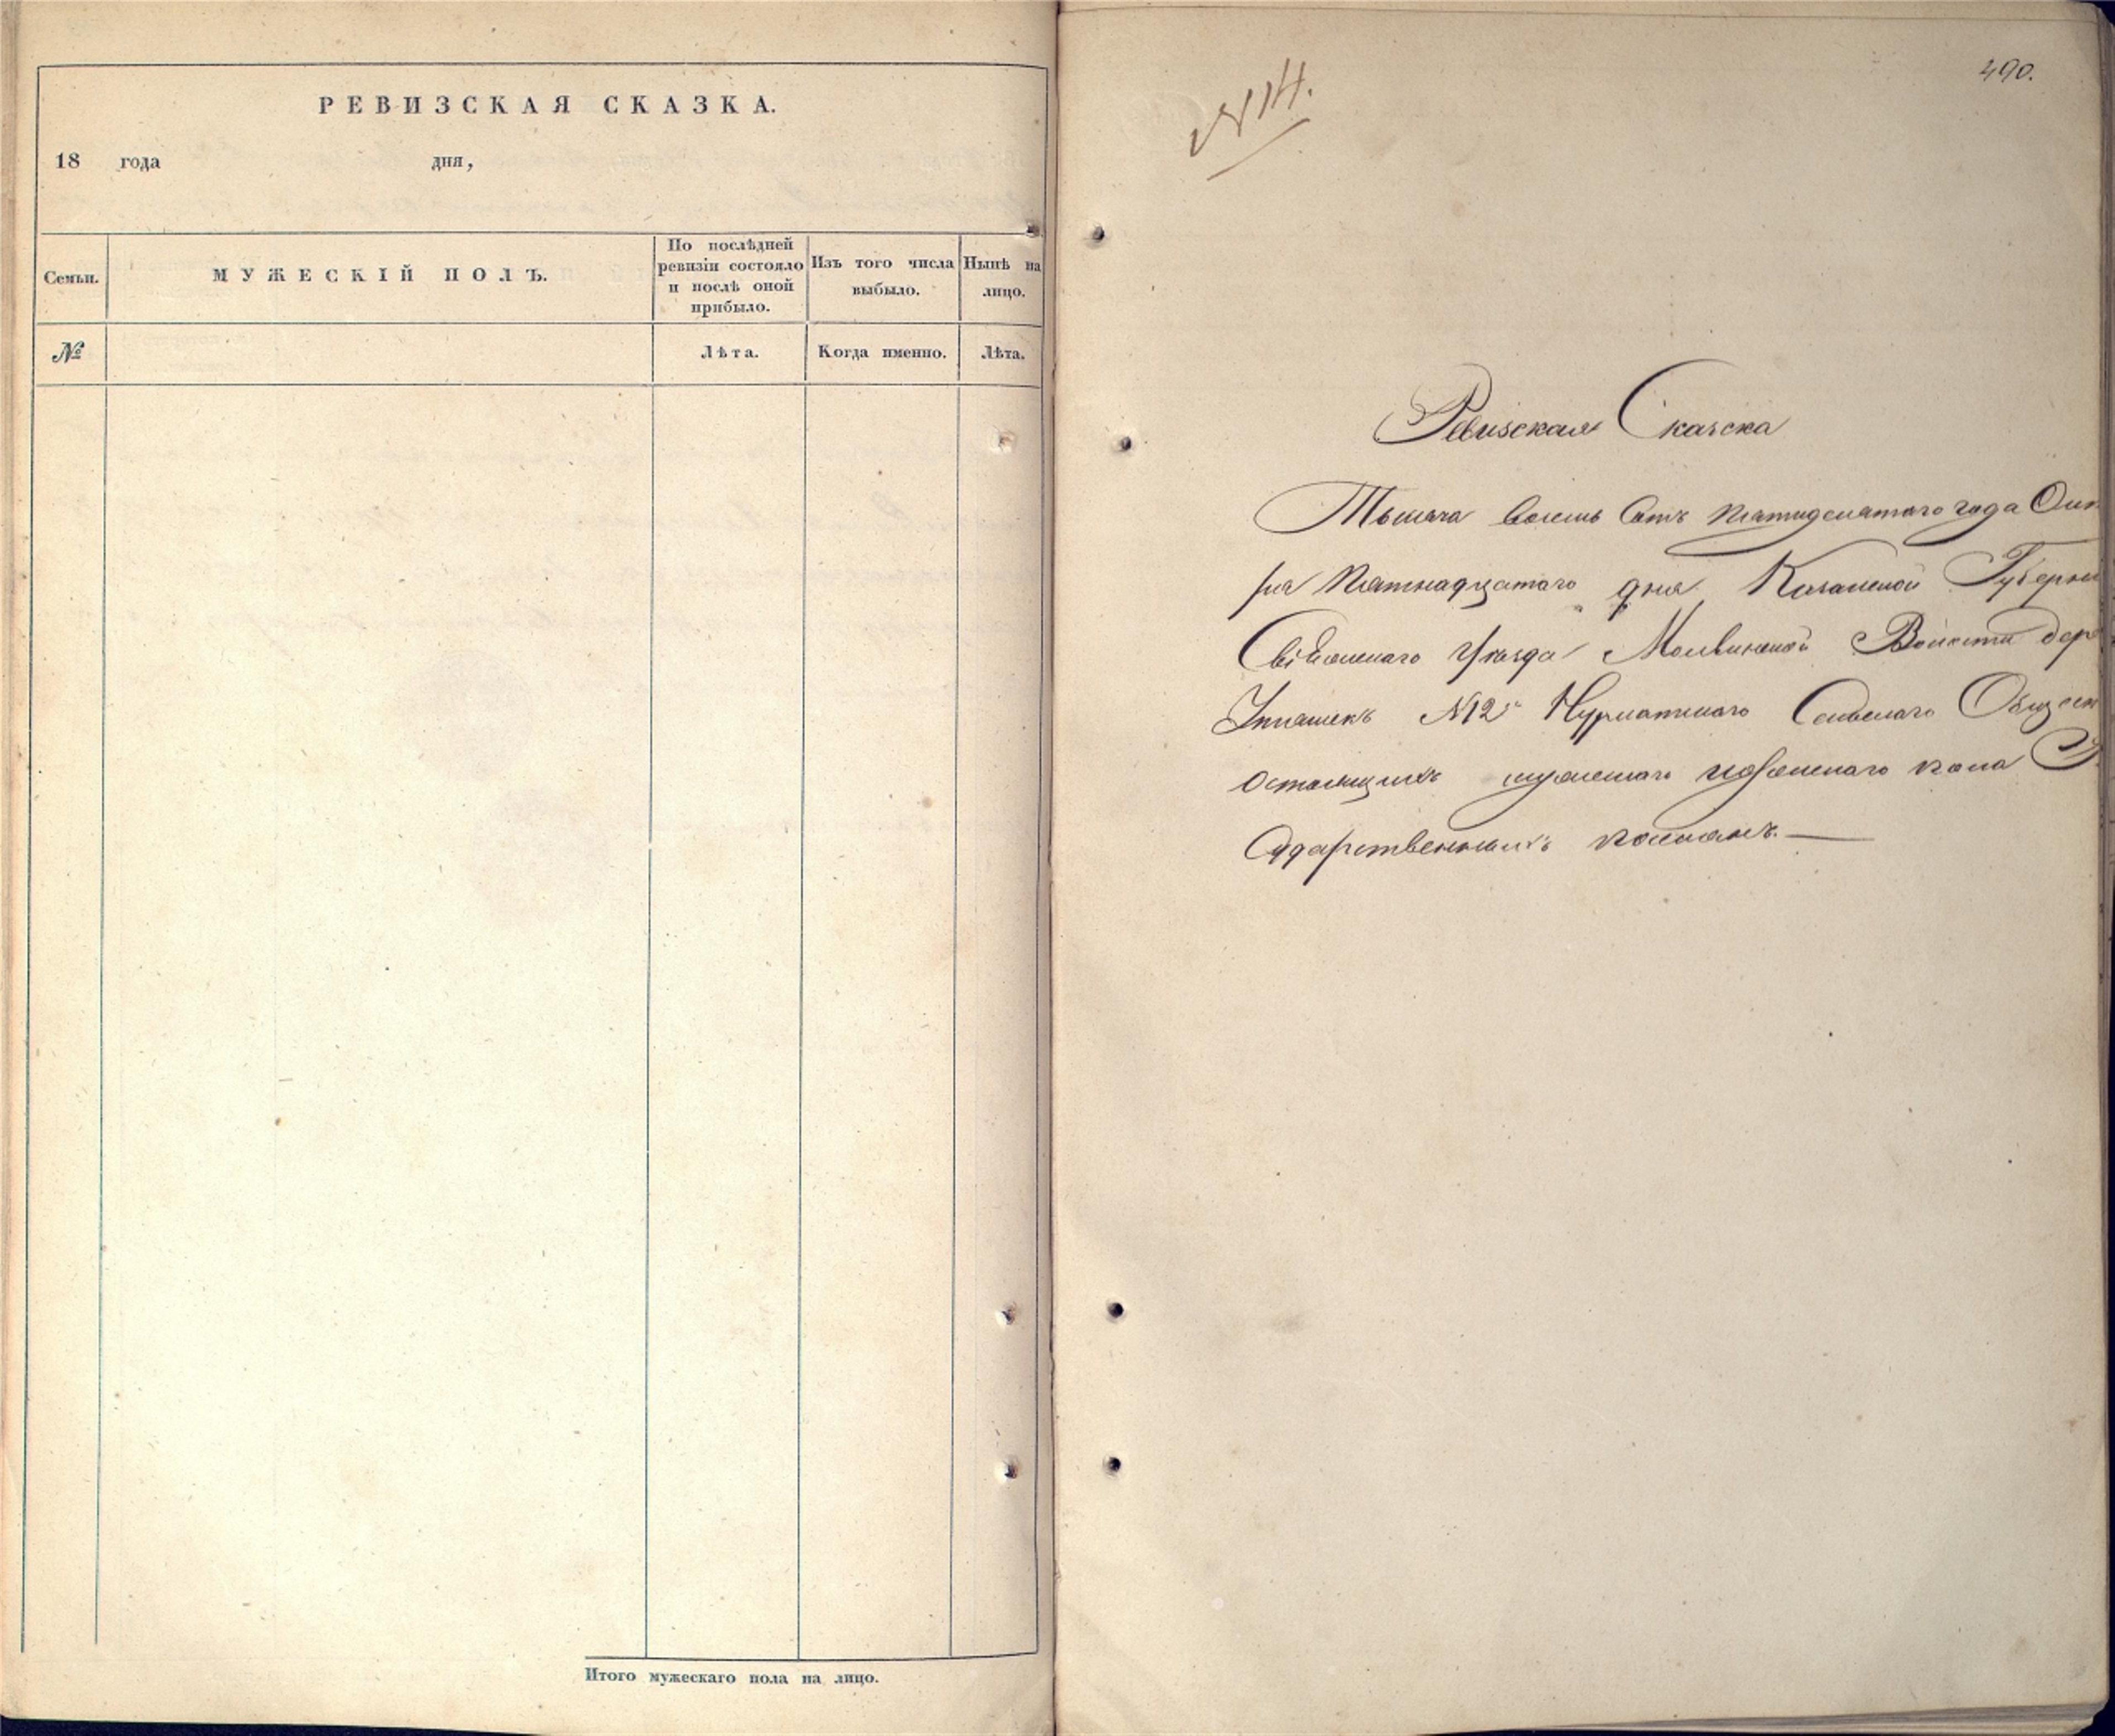 РЕВИЗСКАЯ СКАЗКА.
18 года дня,
Семьи.
МУЖЕСКІЙ ПОЛЪ.
По послѣдней
ревизіи состояло
и послѣ оной
прибыло.
Изъ того числа
выбыло.
Нынѣ на
лицо.
№
Лѣта.
Когда именно.
Лѣта.
Итого мужескаго пола на лицо.
490.
N 14.
Ревизская Сказска
Тысяча восемь сотъ пятидесятаго года Окт
ря пятнадцатаго дня Казанской Губерни
Свіяжскаго уѣзда Молвинской Волости дер
N12 Нурлатскаго Сельскаго Общест
состоящихъ мужескаго и женскаго пола Г
сударственныхъ